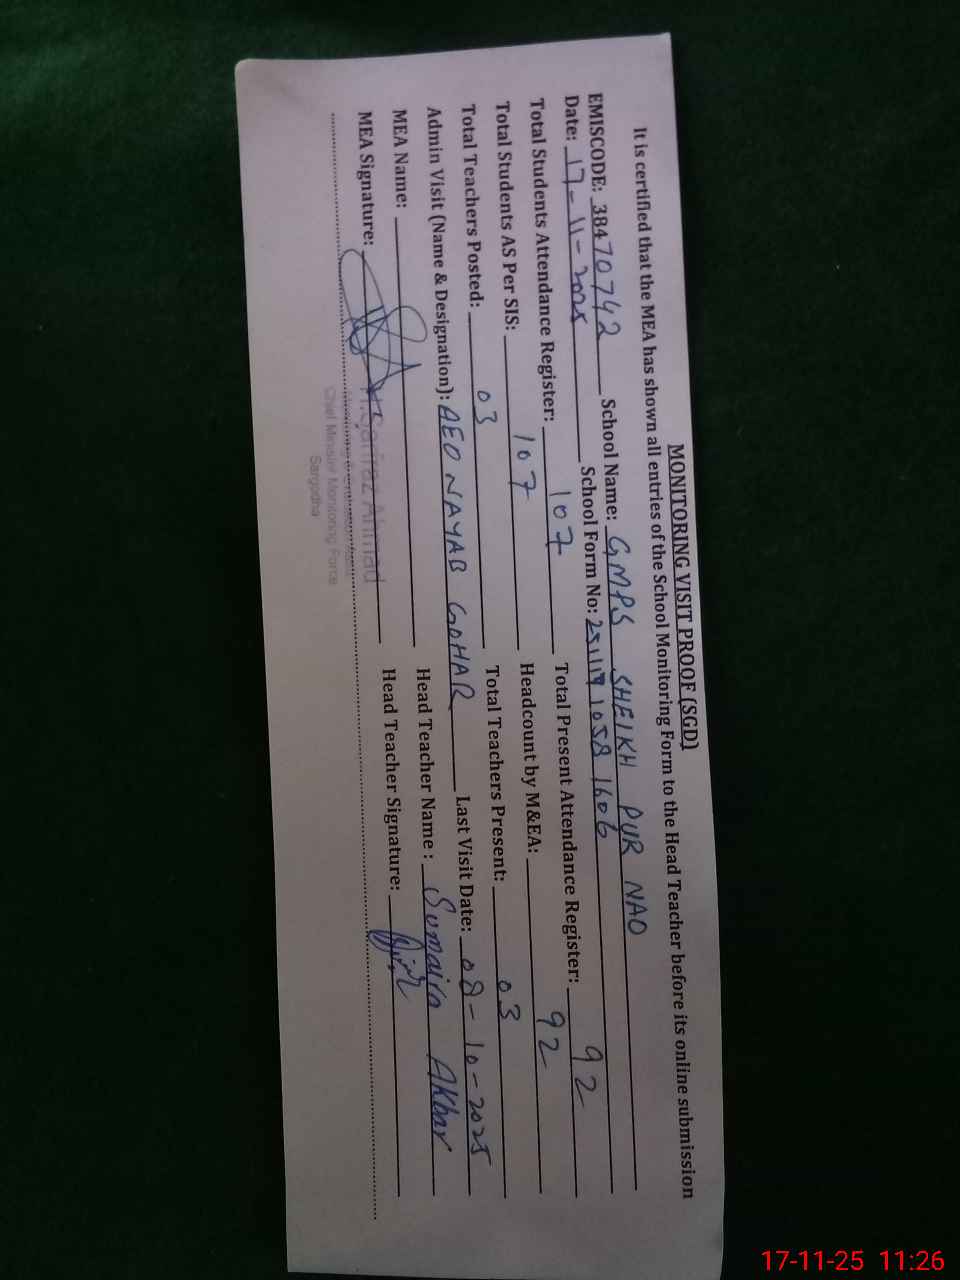 MONITORING VISIT PROOF (SGD)
It is certified that the MEA has shown all entries of the School Monitoring Form to the Head Teacher before its online submission
EMISCODE: 38470742 School Name: GMPS SHEIKH PUR NAO
Date: 17-11-2025 School Form No: 251117 1058 1606
Total Students Attendance Register: 107 Total Present Attendance Register: 92
Total Students AS Per SIS: 107 Headcount by M&EA: 92
Total Teachers Posted: 03 Total Teachers Present: 03
Admin Visit (Name & Designation): AEO NAYAB GOHAR Last Visit Date: 08-10-2025
MEA Name: Head Teacher Name: Sumaira Akbar
MEA Signature: Head Teacher Signature:
Sarfraz Ahmad
Chief Minister Monitoring Force
Sargodha
17-11-25 11:26